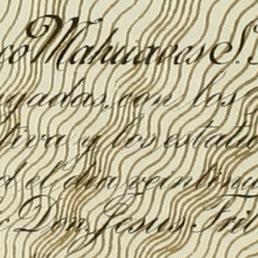 co Mahuaves S.
gadas con los
tiva y los estatu
d el dia veintiun
Don Jesus Trib